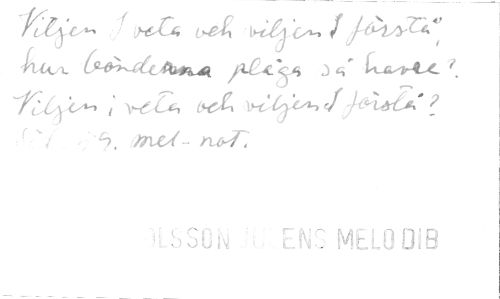 Viljen I veta och viljen I förstå,
hur bönderna pläga så havre?
Viljen i veta och viljen I förstå?
mel-not.
OLSSON JULENS MELODIB